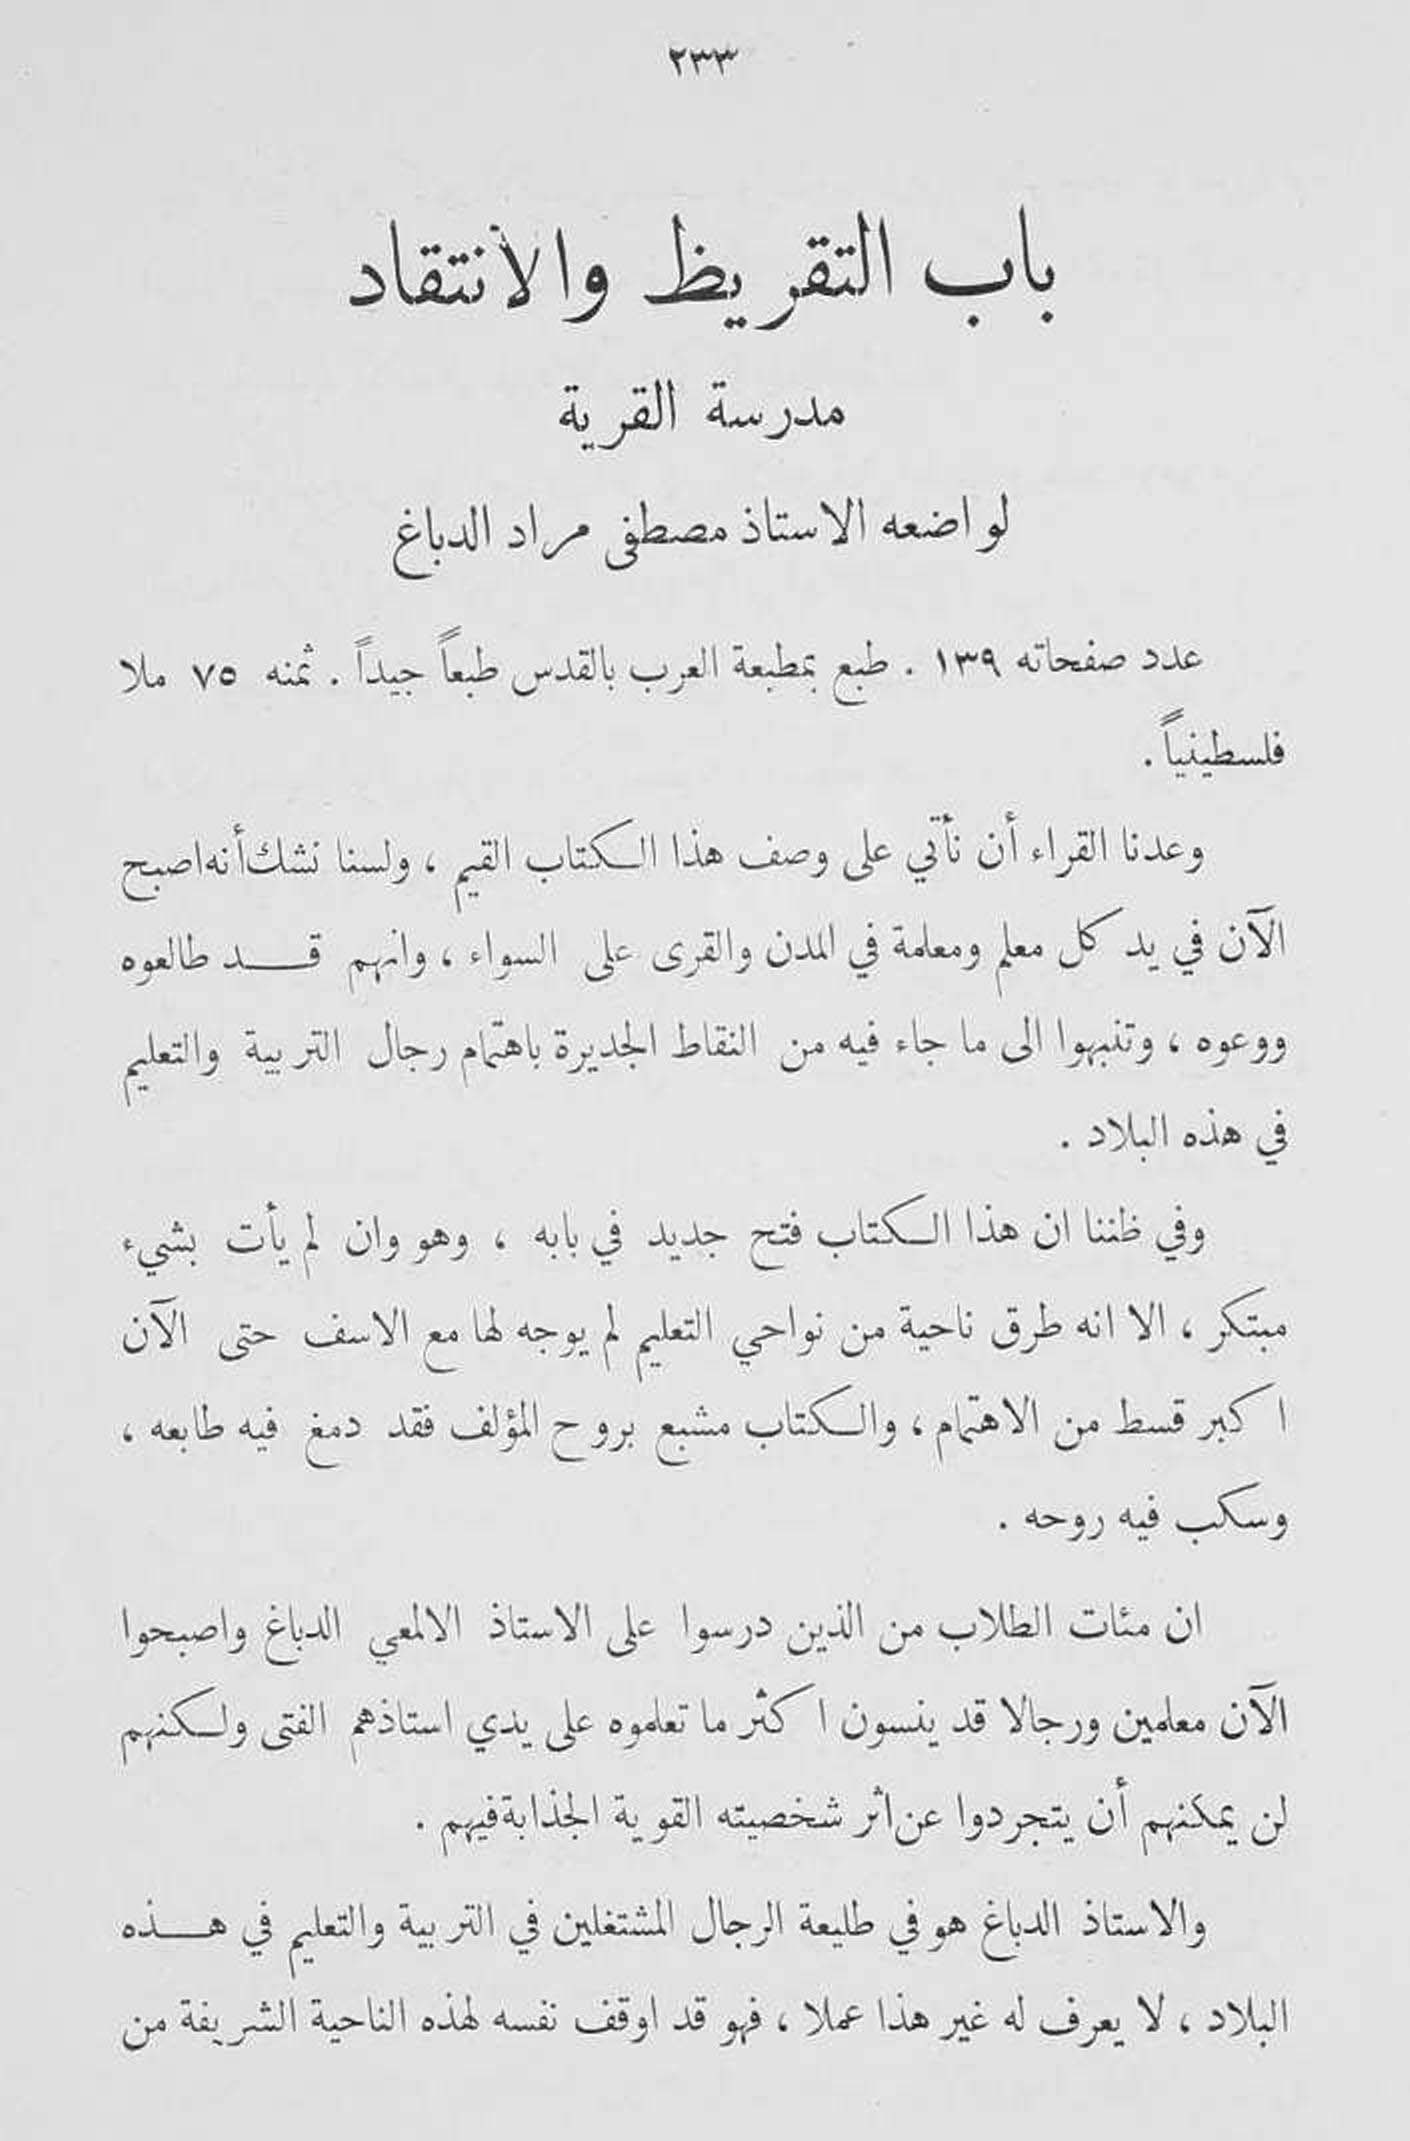 ٢٣٣
باب التقريظ والانتقاد
مدرسة القرية
لواضعه الاستاذ مصطفى مراد الدباغ
عدد صفحاته ١٣٩ . طبع بمطبعة العرب بالقدس طبعاً جيداً . ثمنه ٧٥ ملا
فلسطينياً .
وعدنا القراء أن نأتي على وصف هذا الكتاب القيم ، ولسنا نشك أنه اصبح
الآن في يد كل معلم ومعلمة في المدن والقرى على السواء ، وانهم قد طالعوه
ووعوه ، وتنبهوا الى ما جاء فيه من النقاط الجديرة باهتمام رجال التربية والتعليم
في هذه البلاد .
وفي ظننا ان هذا الكتاب فتح جديد في بابه ، وهو وان لم يأت بشيء
مبتكر ، الا انه طرق ناحية من نواحي التعليم لم يوجه لها مع الاسف حتى الآن
اكبر قسط من الاهتمام ، والكتاب مشبع بروح المؤلف فقد دمغ فيه طابعه ،
وسكب فيه روحه .
ان مئات الطلاب من الذين درسوا على الاستاذ الالمعي الدباغ واصبحوا
الآن معلمين ورجالا قد ينسون اكثر ما تعلموه على يدي استاذهم الفتى ولكنهم
لن يمكنهم أن يتجردوا عن اثر شخصيته القوية الجذابة فيهم .
والاستاذ الدباغ هو في طليعة الرجال المشتغلين في التربية والتعليم في هذه
البلاد ، لا يعرف له غير هذا عملا ، فهو قد اوقف نفسه لهذه الناحية الشريفة من